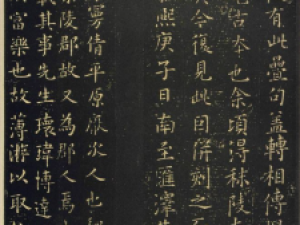 有此疊句蓋轉相傳
古本也余頃得秣陵
今復見此因併刻之
熙庚子日南至匯澤
曼倩平原厭次人也
陵郡故又為郡人焉
其事先生瓌瑋博達
富樂也故薄游以取